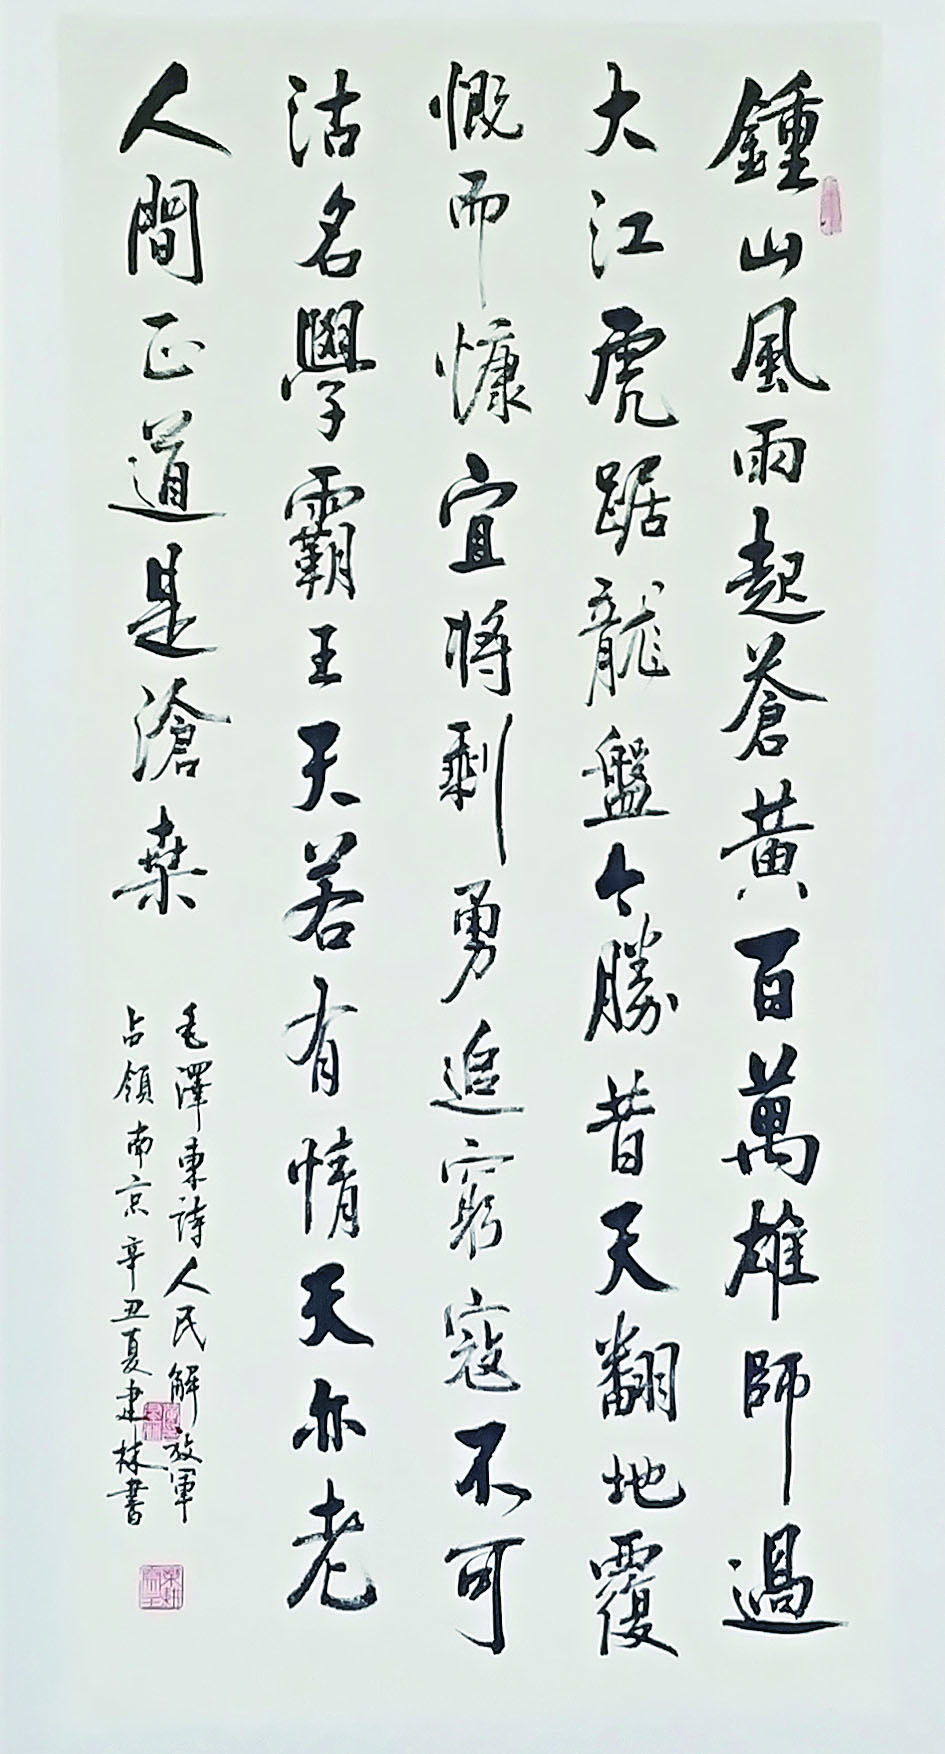 鍾山風雨起蒼黃百萬雄師過
大江虎踞龍盤今勝昔天翻地覆
慨而慷宜將剩勇追窮寇不可
沽名學霸王天若有情天亦老
人間正道是滄桑
毛澤東詩人民解放軍
占領南京辛丑夏建林書